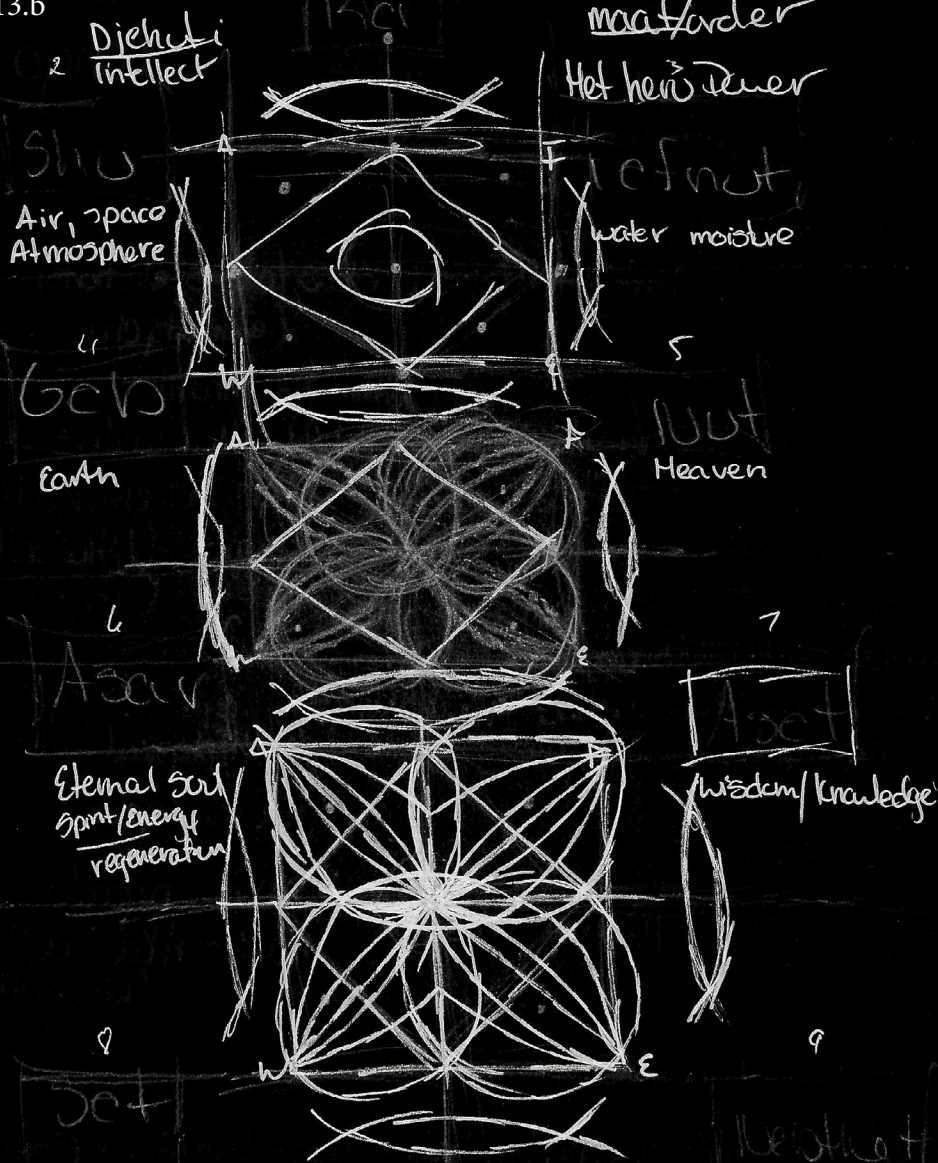 13.b
Djehuti
Intellect
2
maat/order
Het heru
Shu
Tefnut
Air, space
Atmosphere
water moisture
A F
W E
4 5
Geb
Nut
Earth
Heaven
A A
E
6 7
Asar
Aset
Eternal soul
Spirit/energy
regeneration
wisdom/knowledge
W E
8 9
Set